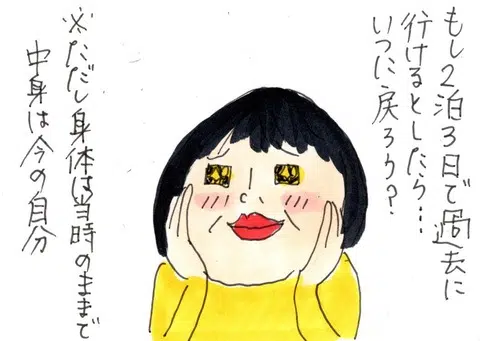 もし2泊3日で過去に
行けるとしたら…
いつに戻ろう?
※ただし身体は当時のままで
中身は今の自分